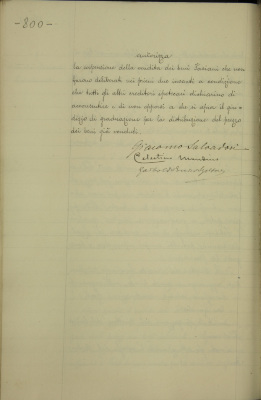 -800-
autorizza
la sospensione della vendita dei beni che non
furono deliberati nei primi due incanti a condizione
che tutti gli altri creditori ipotecari dichiarino di
acconsentire e di non opporsi a che si apra il giu-
dizio di graduazione per la distribuzione del prezzo
dei beni già venduti.
Giacomo Salvadori
Celestino